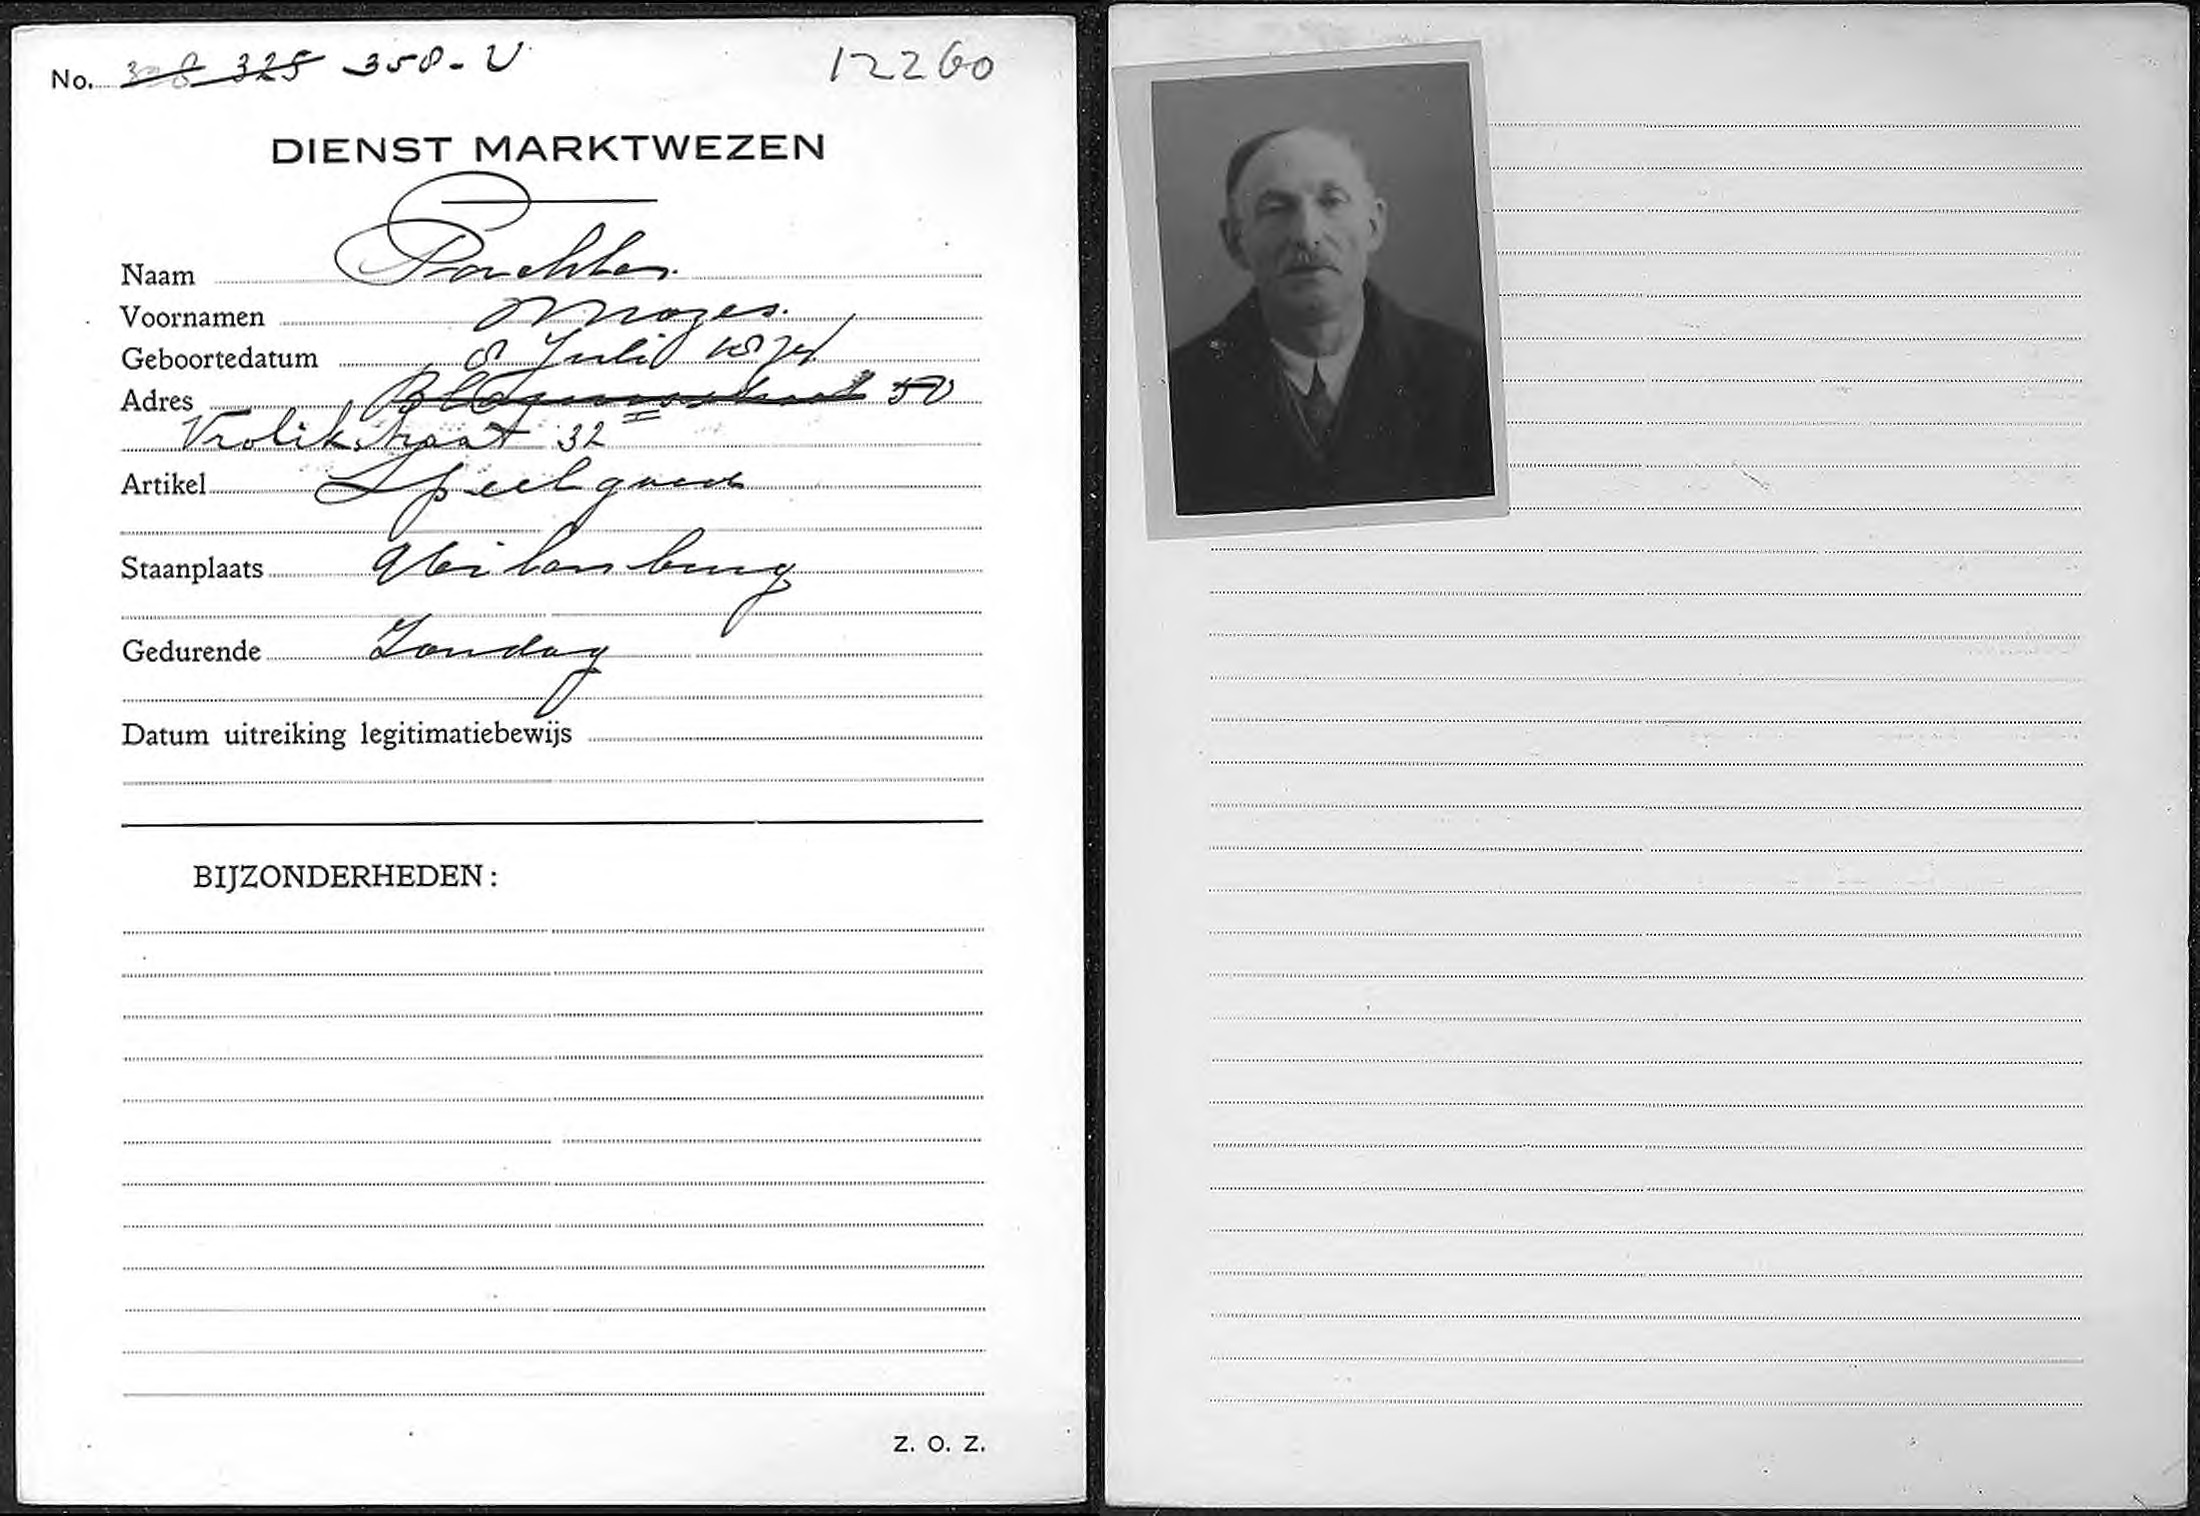 No. 325 358 - U 12260
DIENST MARKTWEZEN
Naam
Voornamen Mozes.
Geboortedatum 8 Juli 1874
Adres 50
Vrolikstraat 32 II
Artikel Speelgoed
Staanplaats Uilenburg
Gedurende Zondag
Datum uitreiking legitimatiebewijs
BIJZONDERHEDEN:
Z. O. Z.